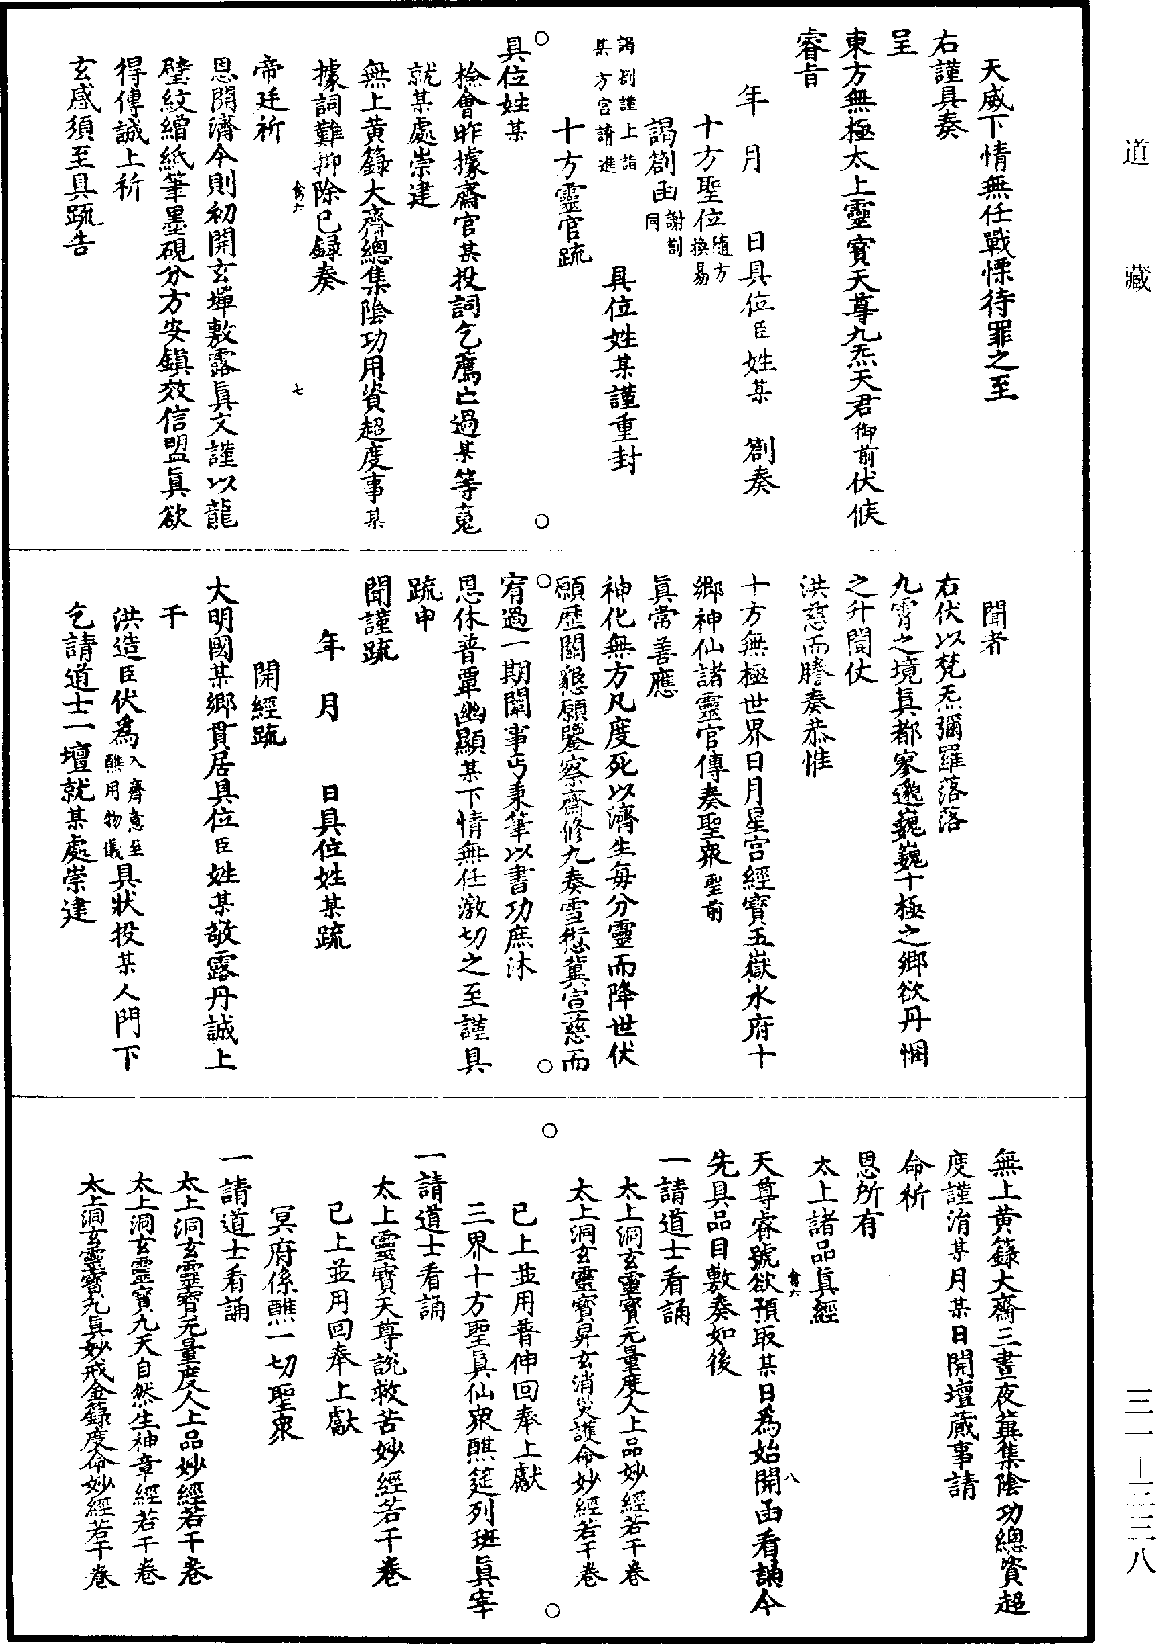 道藏
三一—三三八
天威下情無任戰慄待罪之至
右謹具奏
呈
東方無極太上靈寶天尊九炁天君御前伏候
睿旨
年 月 日具位臣姓某 劄奏
十方聖位隨方換易
謁劄函謝劄同 具位姓某謹重封
謁劄謹上詣
某方宮請進
十方靈官疏
具位姓某
檢會昨據齋官某投詞乞薦亡過某等䰟
就某處崇建
無上黃籙大齋總集陰功用資超度事某
據詞難抑除已錄奏
禽六 七
帝廷祈
恩開濟今則初開玄壇敷露真文謹以龍
璧紋繒紙筆墨硯分方安鎮效信盟真欲
得傳誠上祈
玄感須至具䟽告
聞者
右伏以梵炁彌羅落落
九霄之境真都寥邈巍巍十極之鄉欲丹悃
之升聞仗
洪慈而騰奏恭惟
十方無極世界日月星宮經寶五嶽水府十
鄉神仙諸靈官傳奏聖眾聖前
真常善應
神化無方凡度死以濟生每分靈而降世伏
願歷關懇願鑒察齋修九奏雪愆冀宣慈而
宥過一期闡事丐秉筆以書功庶沐
恩休普覃幽顯某下情無任激切之至謹具
䟽申
聞謹䟽
年 月 日具位姓某䟽
開經䟽
大明國某鄉貫居具位臣姓某敬露丹誠上
干
洪造臣伏為入齋意至醮用物儀具狀投某人門下
乞請道士一壇就某處崇建
無上黃籙大齋三晝夜募集陰功總資超
度謹涓某月某日開壇蕆事請
命祈
恩所有
太上諸品真經
禽六 八
天尊睿號欲預取某日為始開函看誦今
先具品目敷奏如後
一請道士看誦
太上洞玄靈寶元量度人上品妙經若干卷
太上洞玄靈寶昇玄消災護命妙經若干卷
已上並用普伸回奉上獻
三界十方聖真仙眾醮筵列班真宰
一請道士看誦
太上靈寶天尊說救苦妙經若干卷
已上並用回奉上獻
冥府係醮一切聖眾
一請道士看誦
太上洞玄靈寶元量度人上品妙經若干卷
太上洞玄靈寶九天自然生神章經若干卷
太上洞玄靈寶九真妙戒金籙度命妙經若干卷